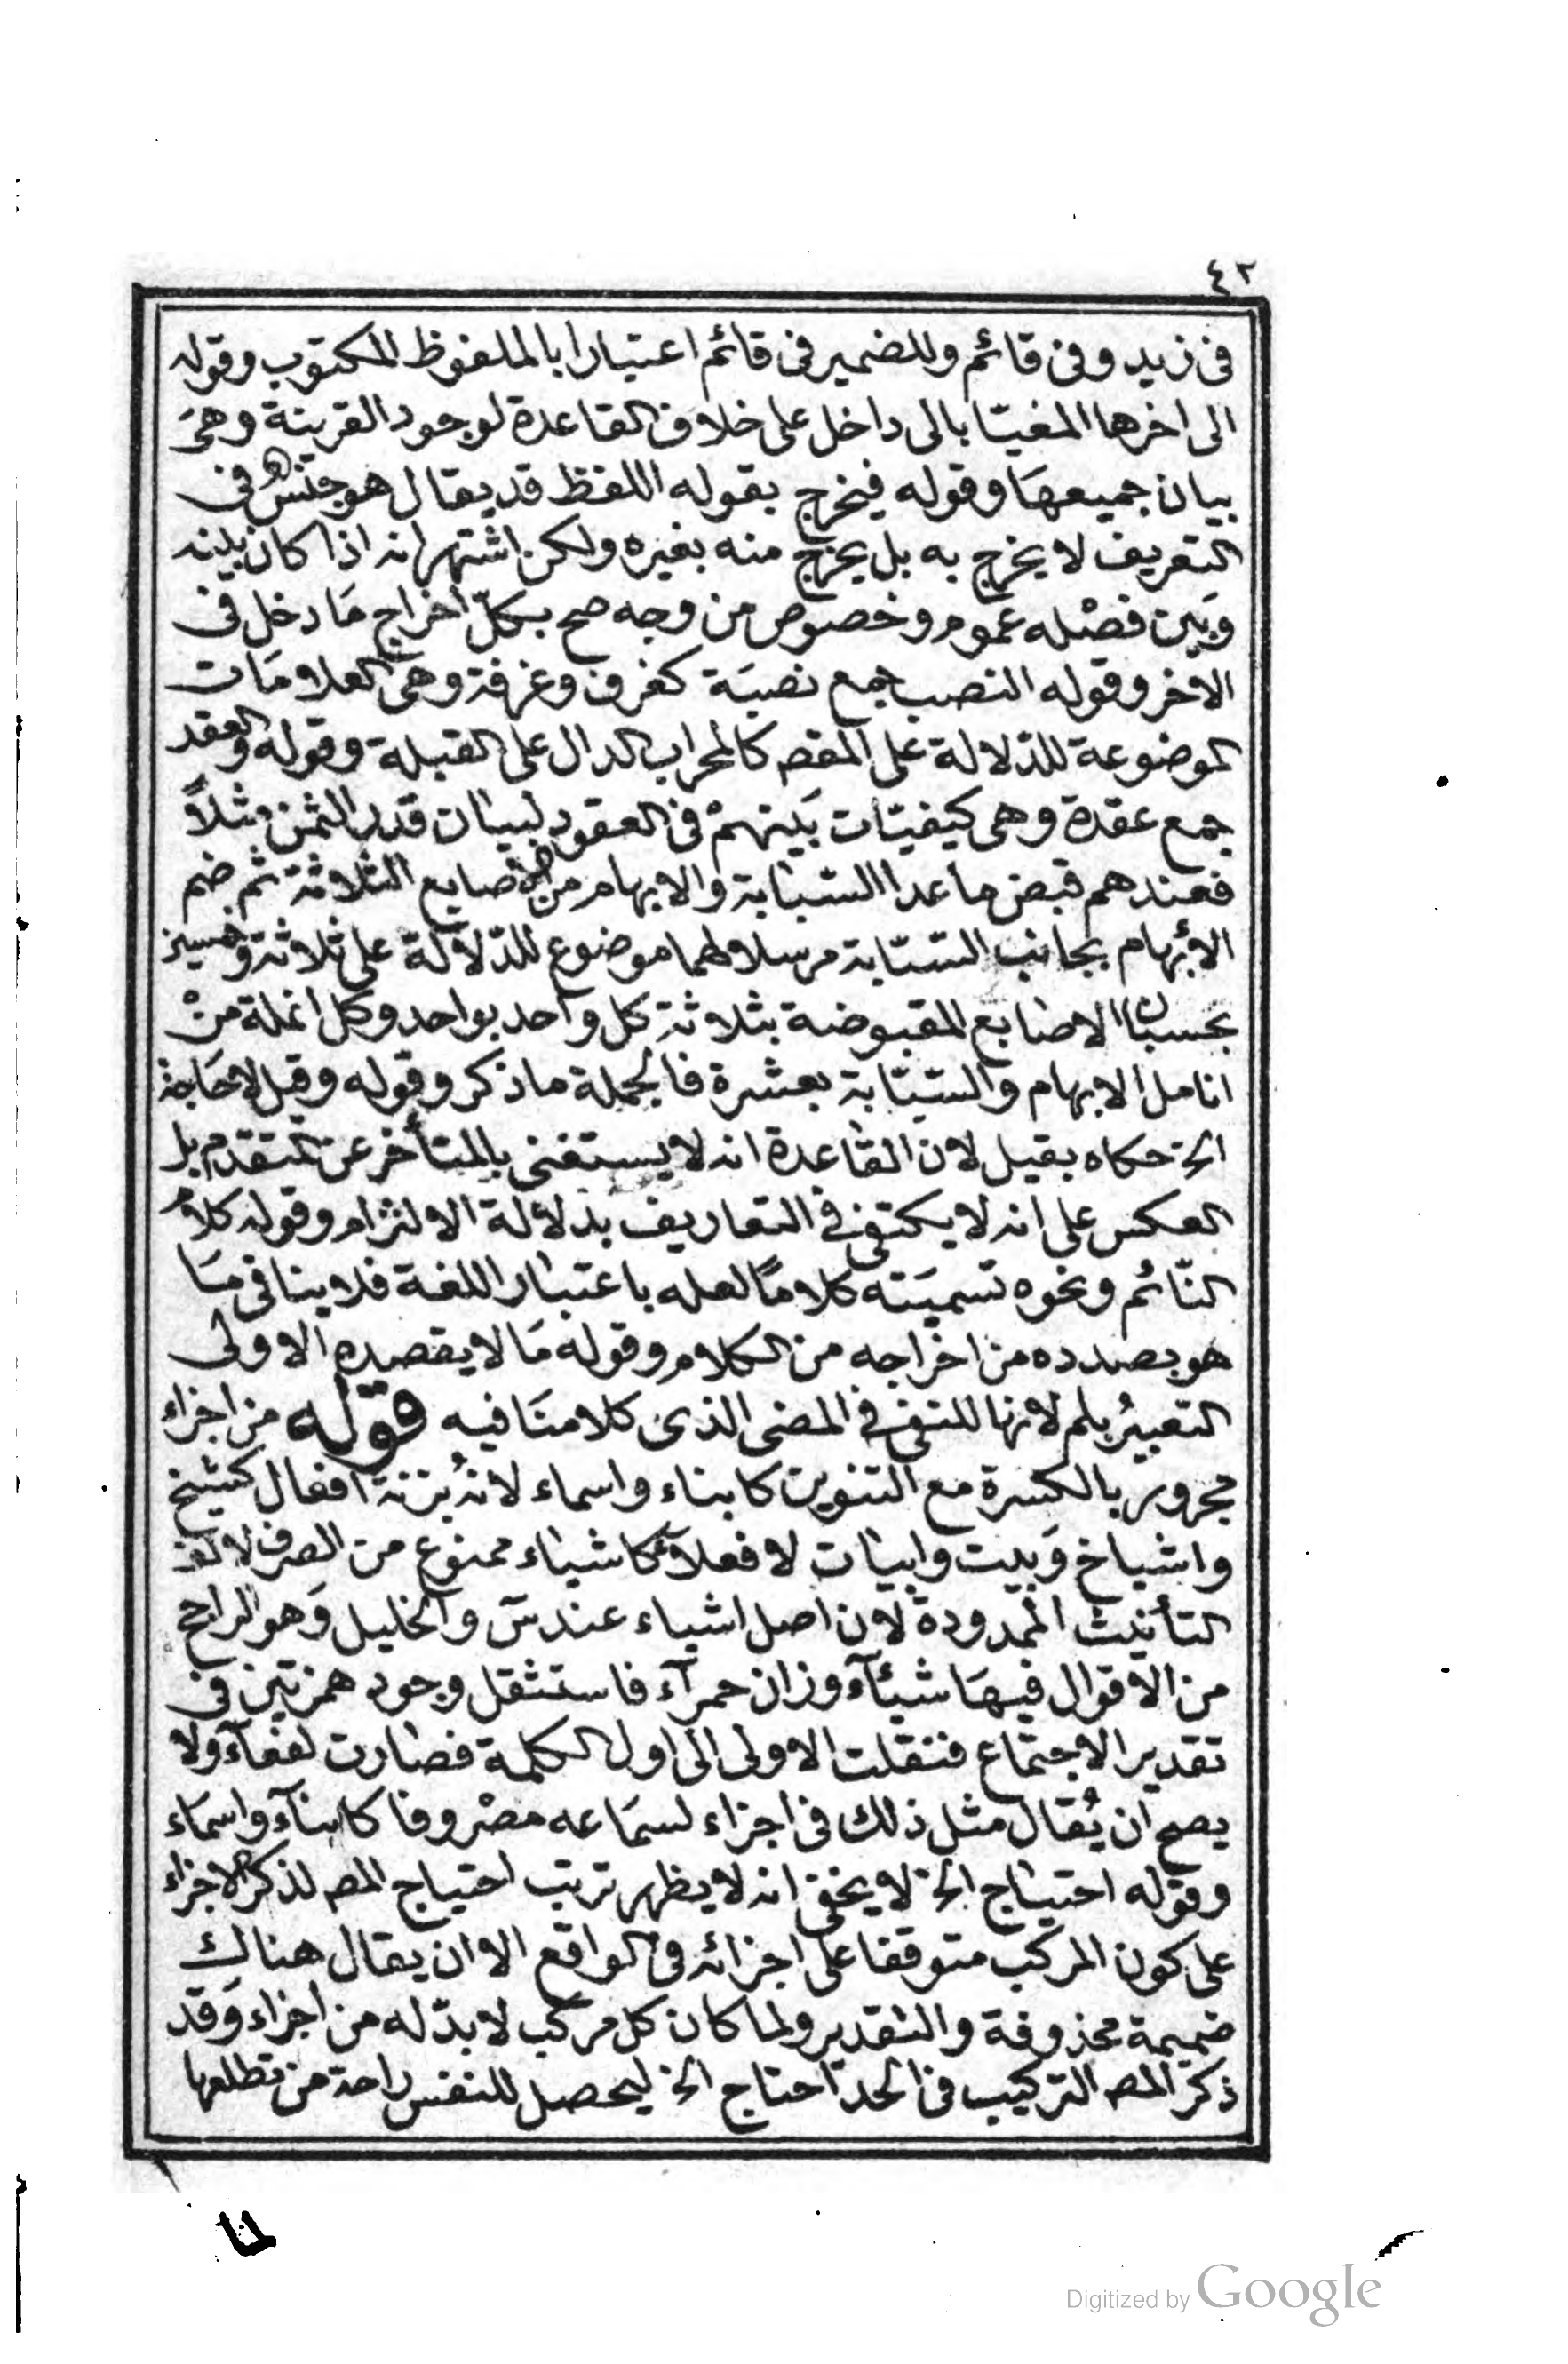 ٤٢
فى زيد وفى قائم وللضمير فى قائم اعتبارا بالملفوظ المكتوب وقوله
الى اخرها المغيّا بالى داخل على خلاف القاعدة لوجود القرينة وهىَ
بيان جميعهَا وقوله فيخرج بقوله اللفظ قد يقال هو جنسٌ فى
التعريف لا يخرج به بل يخرج منه بغيره ولكن اشتهر انه اذا كان بينه
وَبين فصْله عموم وخصوص من وجه صح بكلّ اخراج مَا دخل فى
الاخر وقوله النصب جمع نصبَة كغرف وغرفة وهى العلامَات
الموضوعة للدّلالة على المقصـ كالمحراب الدال على القبلة وقوله والعقد
جمع عقدة وهى كيفيّات بَينهمْ فى العقود لبيان قدر الثمن مثلاً
فعندهم قبض ما عدا السّبابة والابهام من الاصابع الثلاثة ثم ضم
الأبهام بجانب السّبّابة مرسلا لهما موضوع للدّلالة على ثلاثة وخمسين
بحسبان الاصابع المقبوضة بثلاثة كل واحد بواحد وكل انملة منْ
انامل الابهام والسّبّابة بعشرة فالجملة ما ذكر وقوله وقيل لا حَاجة
الخ حكاه بقيل لان القاعدة انه لا يستغنى بالمتأخر عن المتقدم بل
العكس على انه لا يكتفى فى التعاريف بدلالة الالتزام وقوله كلام
النّائم ونحوه تسميَته كلامًا لعله باعتبار اللغة فلا ينافى مَا
هو بصدده من اخراجه من الكلام وقوله مَا لا يقصده الاولى
التعبيرُ بلم لانها للنفى فى المضى الذى كلامنَا فيه قوله من اجزاء
مجرور بالكسرة مع التنوين كابناء واسماء لانهُ بزنة افعال كشيخ
واشياخ وَبيت وابيات لا فعلآء كاشياء ممنوع من الصرف لالف
التأنيث الممدودة لان اصل اشياء عند سٓ والخليل وَهو الراجح
من الاقوال فيهَا شيئآء وزان حمرآء فاستثقل وجود همزتين فى
تقدير الاجتماع فنقلت الاولى الى اول الكلمة فصارت لفعآء ولا
يصح ان يُقال مثل ذلك فى اجزاء لسمَاعه مصْروفا كابنآء واسمَاء
وقوله احتياج الخ لا يخفى انه لا يظهر ترتب احتياج المصـ لذكر الاجزاء
على كون المركب متوقفا على اجزائه فى الواقع الا ان يقال هناك
ضميمة محذوفة والتقدير ولما كان كل مركب لا بدّ له من اجزاء وَقد
ذكر المصـ التركيب فى الحد احتاج الخ ليحصل للنفس راحة من تطلعها
Digitized by Google